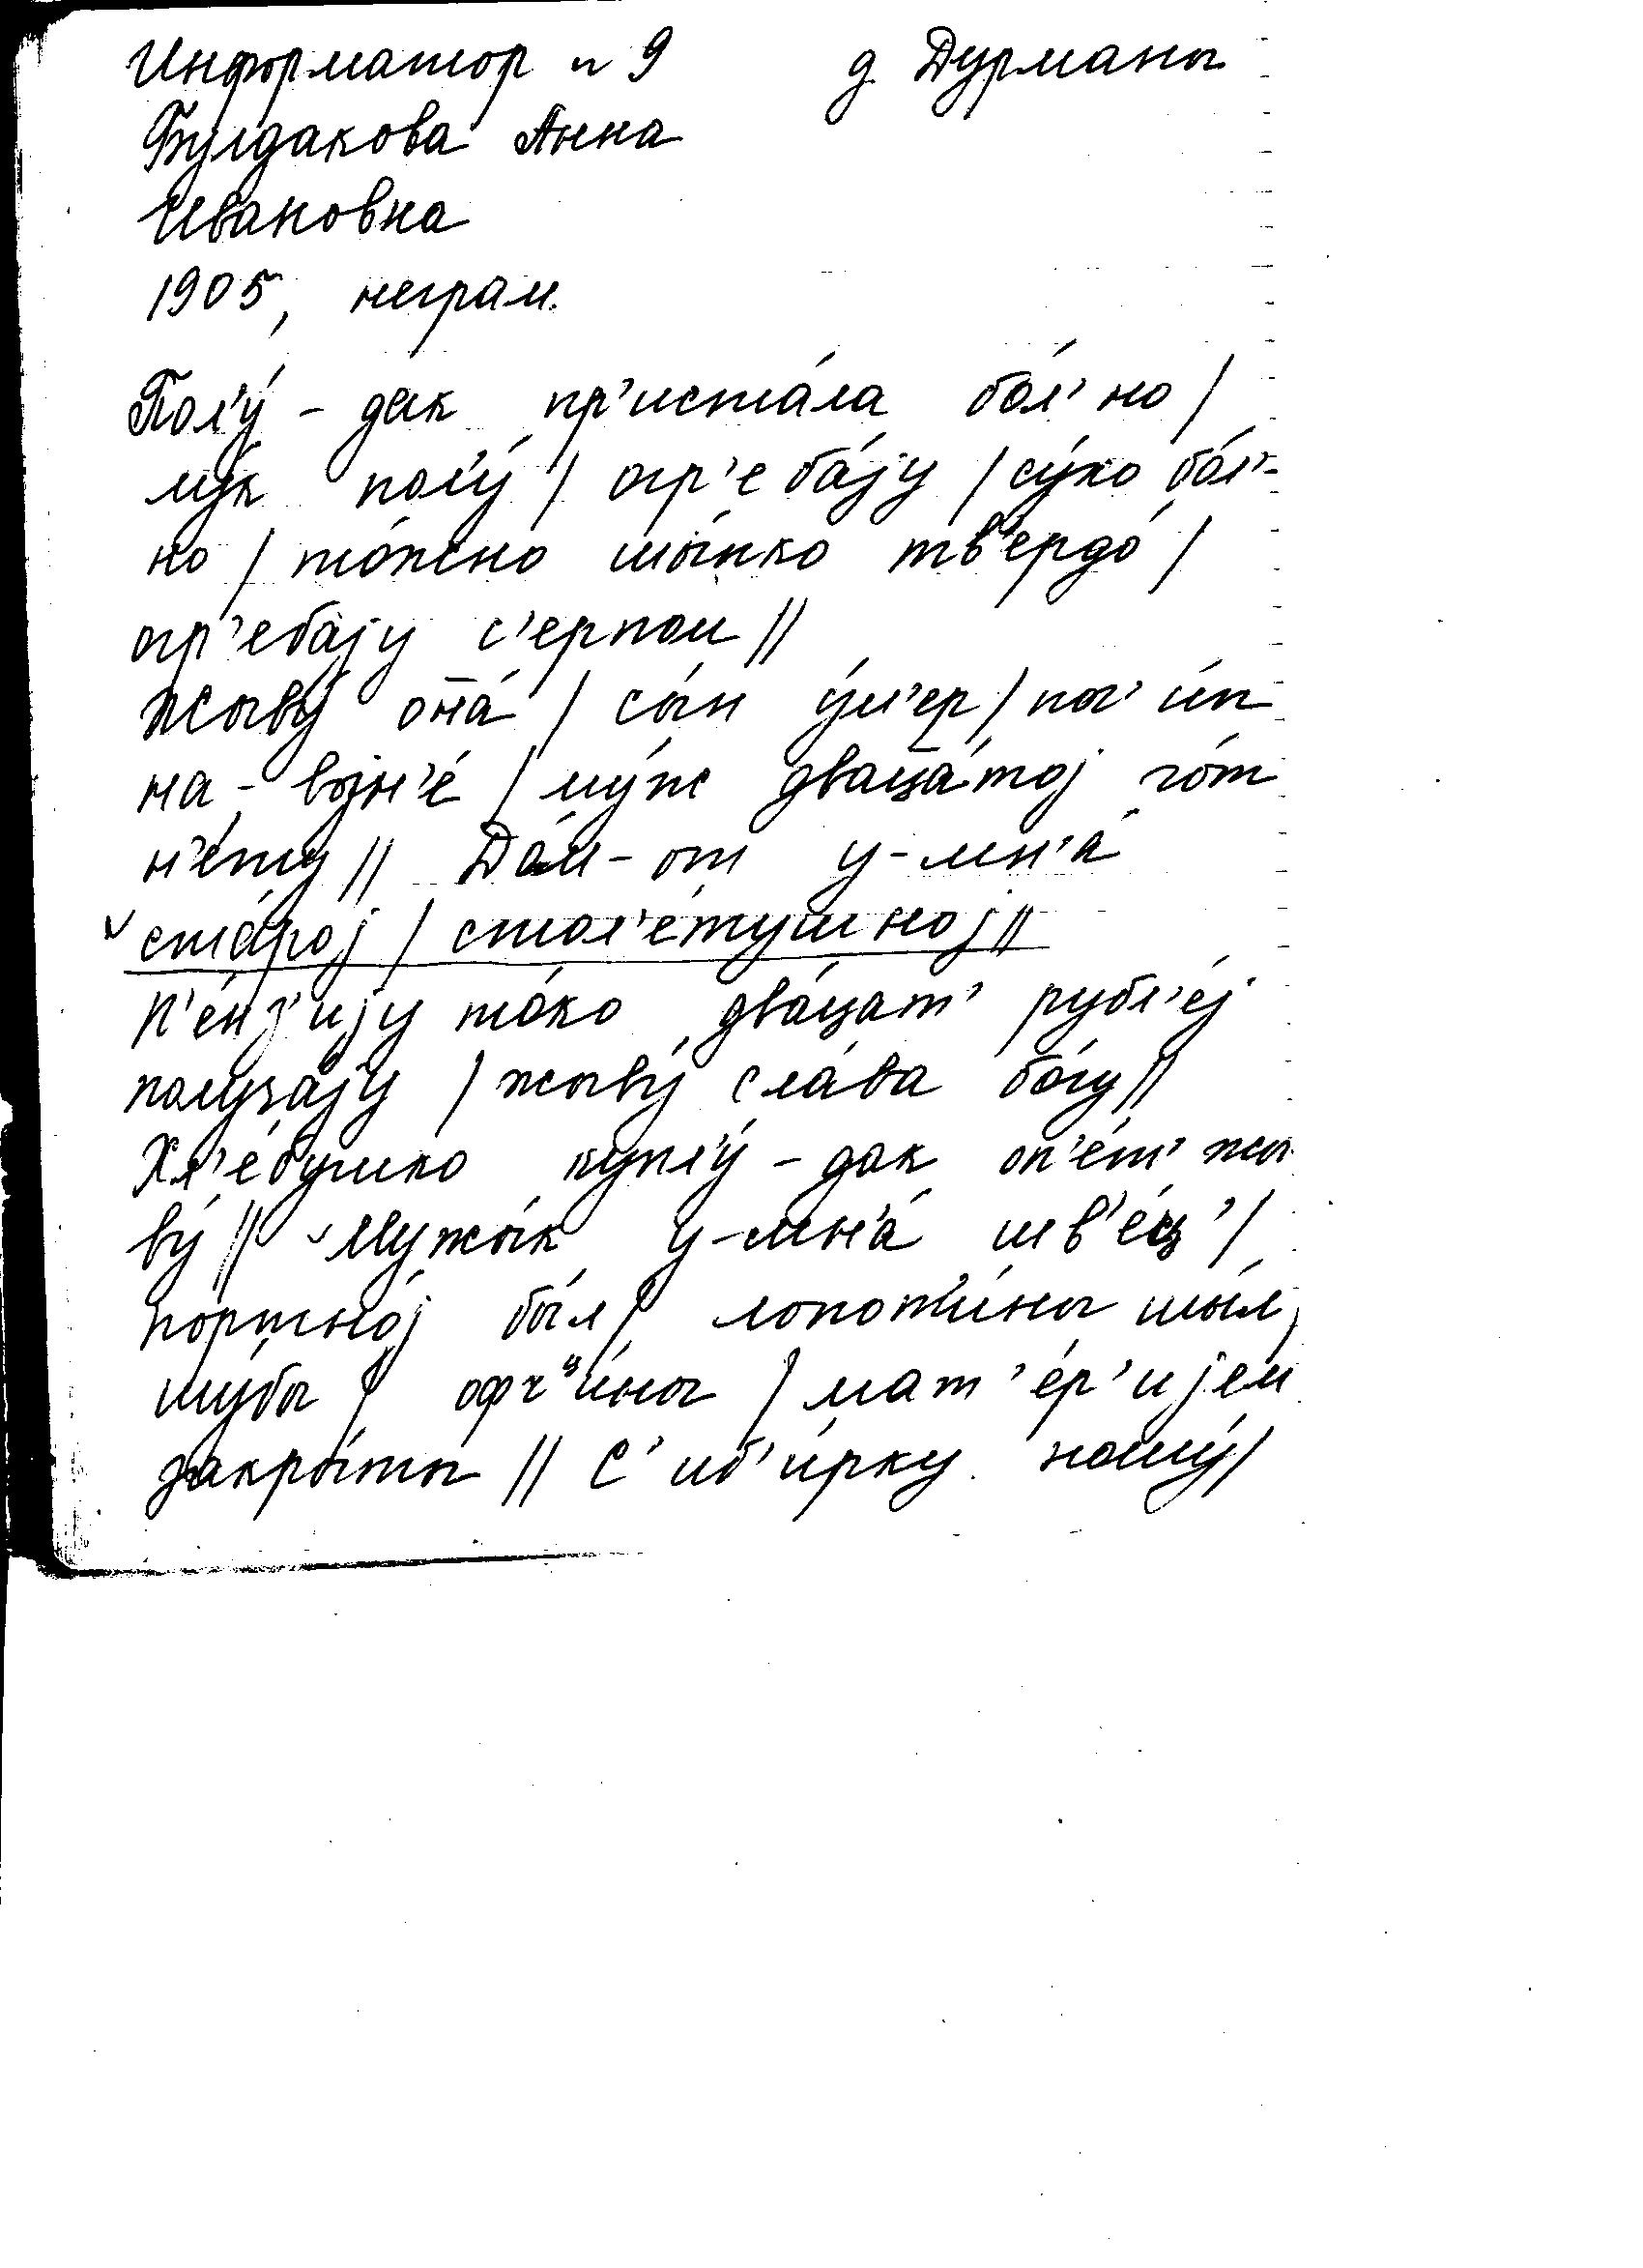 Информатор № 9 д Дурманы
Булдакова Анна
Ивановна
1905, неграм.
Пол'у́ - дак пр'иста́ла бо́л'но /
лу́к пол'у́ / огр'еба́jу / су́хо бо́л'-
но / то́жно шы́пко тв'ердо́ /
огр'еба́jу с'ерпом //
Жыву́ о̄на́ / сы́н у́м'ер / пог'и́п
на-војн'е́ / му́ж двац̄а́тој го́т
н'е́ту // До́м-от у-мн'а́
ста́рој / стол'е́тушној //
П'е́нз'иjу то́ко два́цат' рубл'е́j
получа́jу / жыву́ сла́ва бо́гу //
Хл'е́бушко купл'у́ - дак оп'е́т' жы
ву́ // Мужы́к у-мн'а́ шв'е́ц' /
портно́j бы́л / лопот'и́ны шы́л,
шу́бы / офч'ᶣи́ны / мат'е́р'иjем
закры́ты // С'иб'и́рку ношу́ /